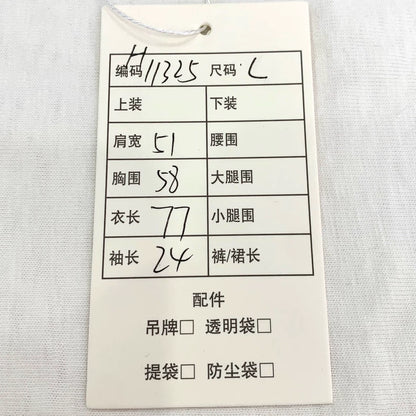 编码 H11325 尺码 L
上装 下装
肩宽 51 腰围
胸围 58 大腿围
衣长 77 小腿围
袖长 24 裤/裙长
配件
吊牌□ 透明袋□
提袋□ 防尘袋□